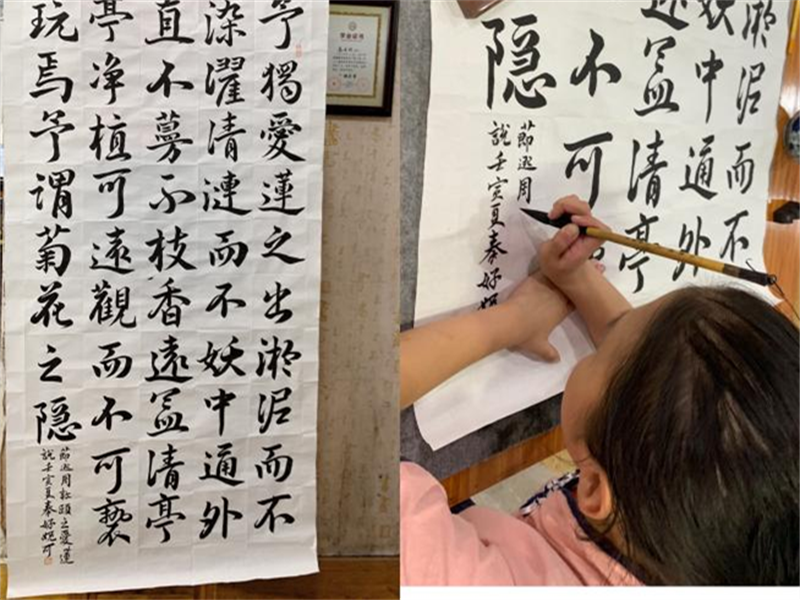 予獨愛蓮之出淤泥而不
染濯清漣而不妖中通外
直不蔓不枝香遠益清亭
亭净植可遠觀而不可褻
玩焉予謂菊花之隐
節选周敦頤之愛蓮
說壬寅夏秦好妮可
淤泥而不
妖中通外
遠益清亭
不可
隐
節选周
說壬寅夏秦好妮